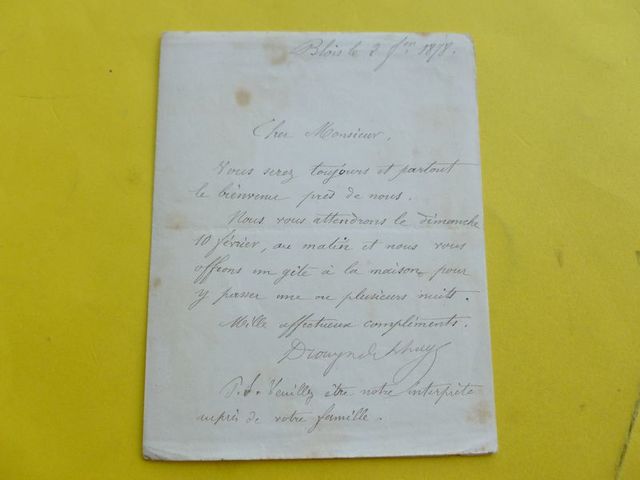 Blois le 2 fer 1878.
Cher Monsieur,
Vous serez toujours et partout
le bienvenu près de nous.
Nous vous attendrons le dimanche
10 février, au matin et nous vous
offrons un gîte à la maison, pour
y passer une ou plusieurs nuits.
Mille affectueux compliments.
Drouyn de Lhuys
P.S. Veuillez être notre interprète
auprès de votre famille.